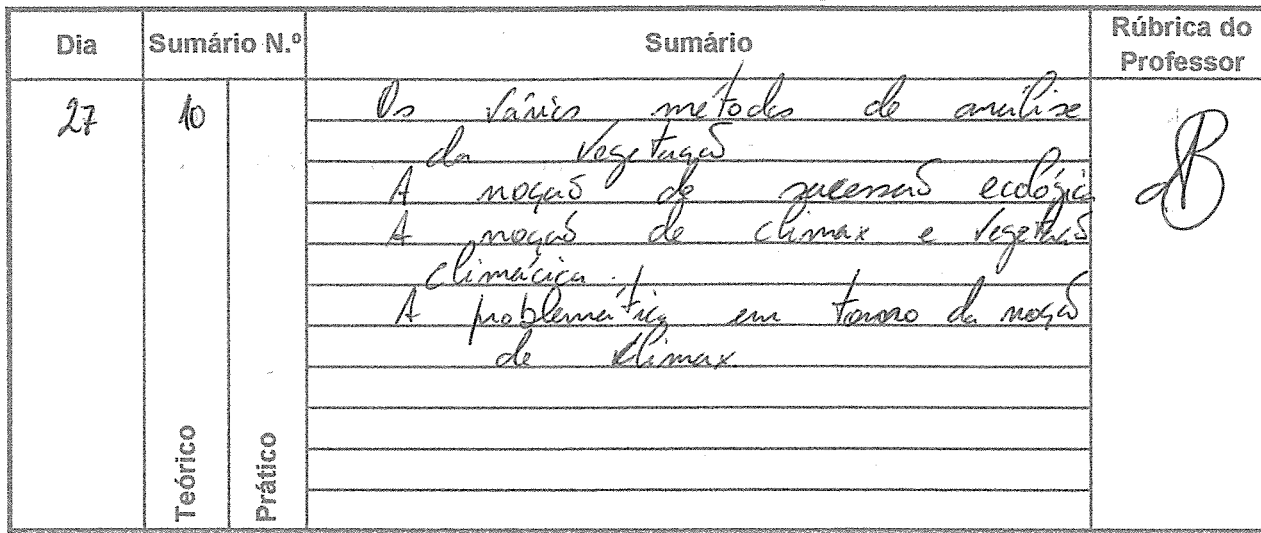 Dia Sumário N.º Sumário Rúbrica do Professor
27 10 Os vários métodos de análise
da vegetação
A noção de sucessão ecológica
A noção de climax e vegetação
climácica.
A problemática em torno da noção
de climax.
Teórico
Prático